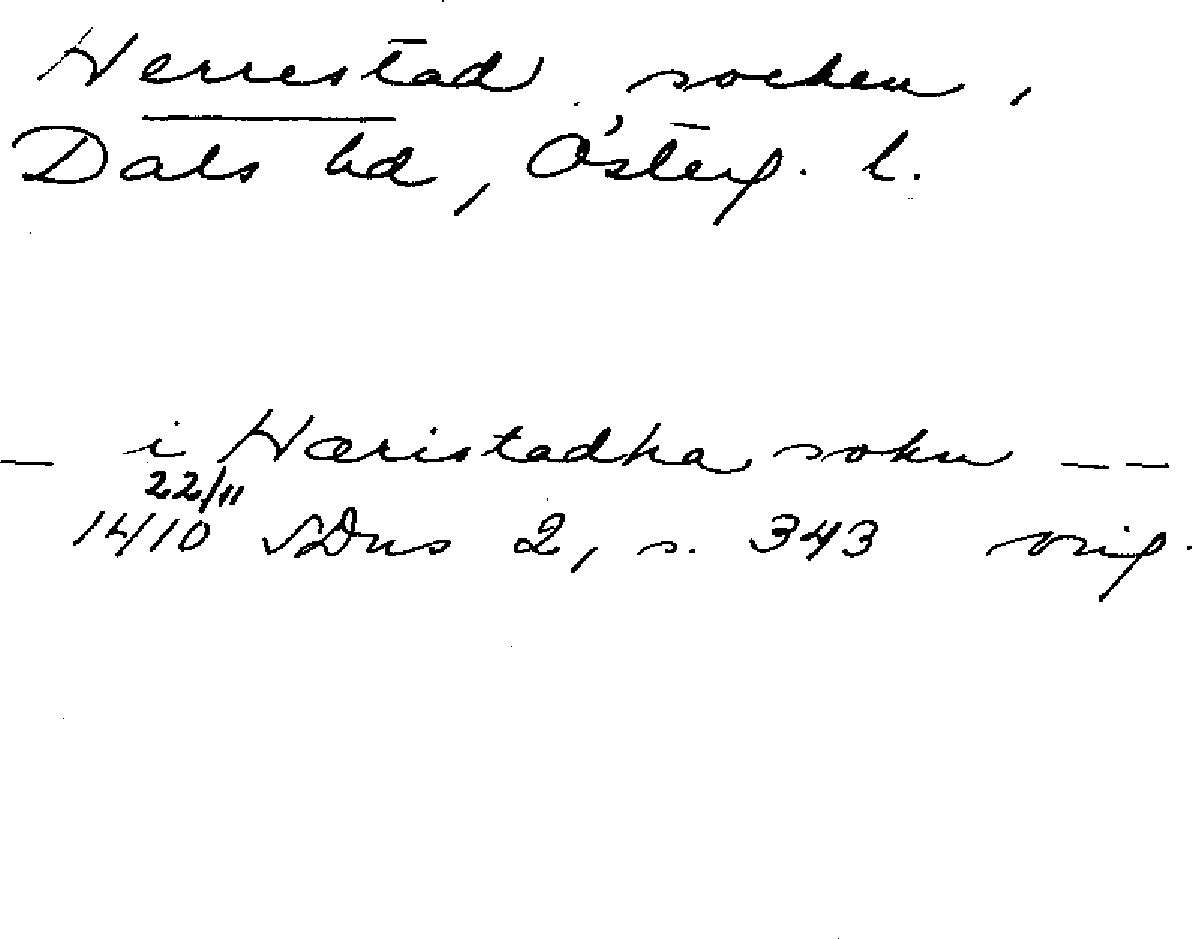 Herrestad socken,
Dals hd, Österg. l.
— i Hæristadha sokn – –
22/11
1410 SDns 2, s. 343 orig.